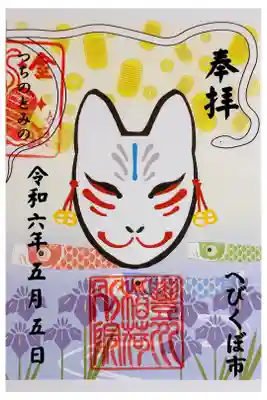 奉拝
へびくぼ市
つちのとみの
令和六年五月五日